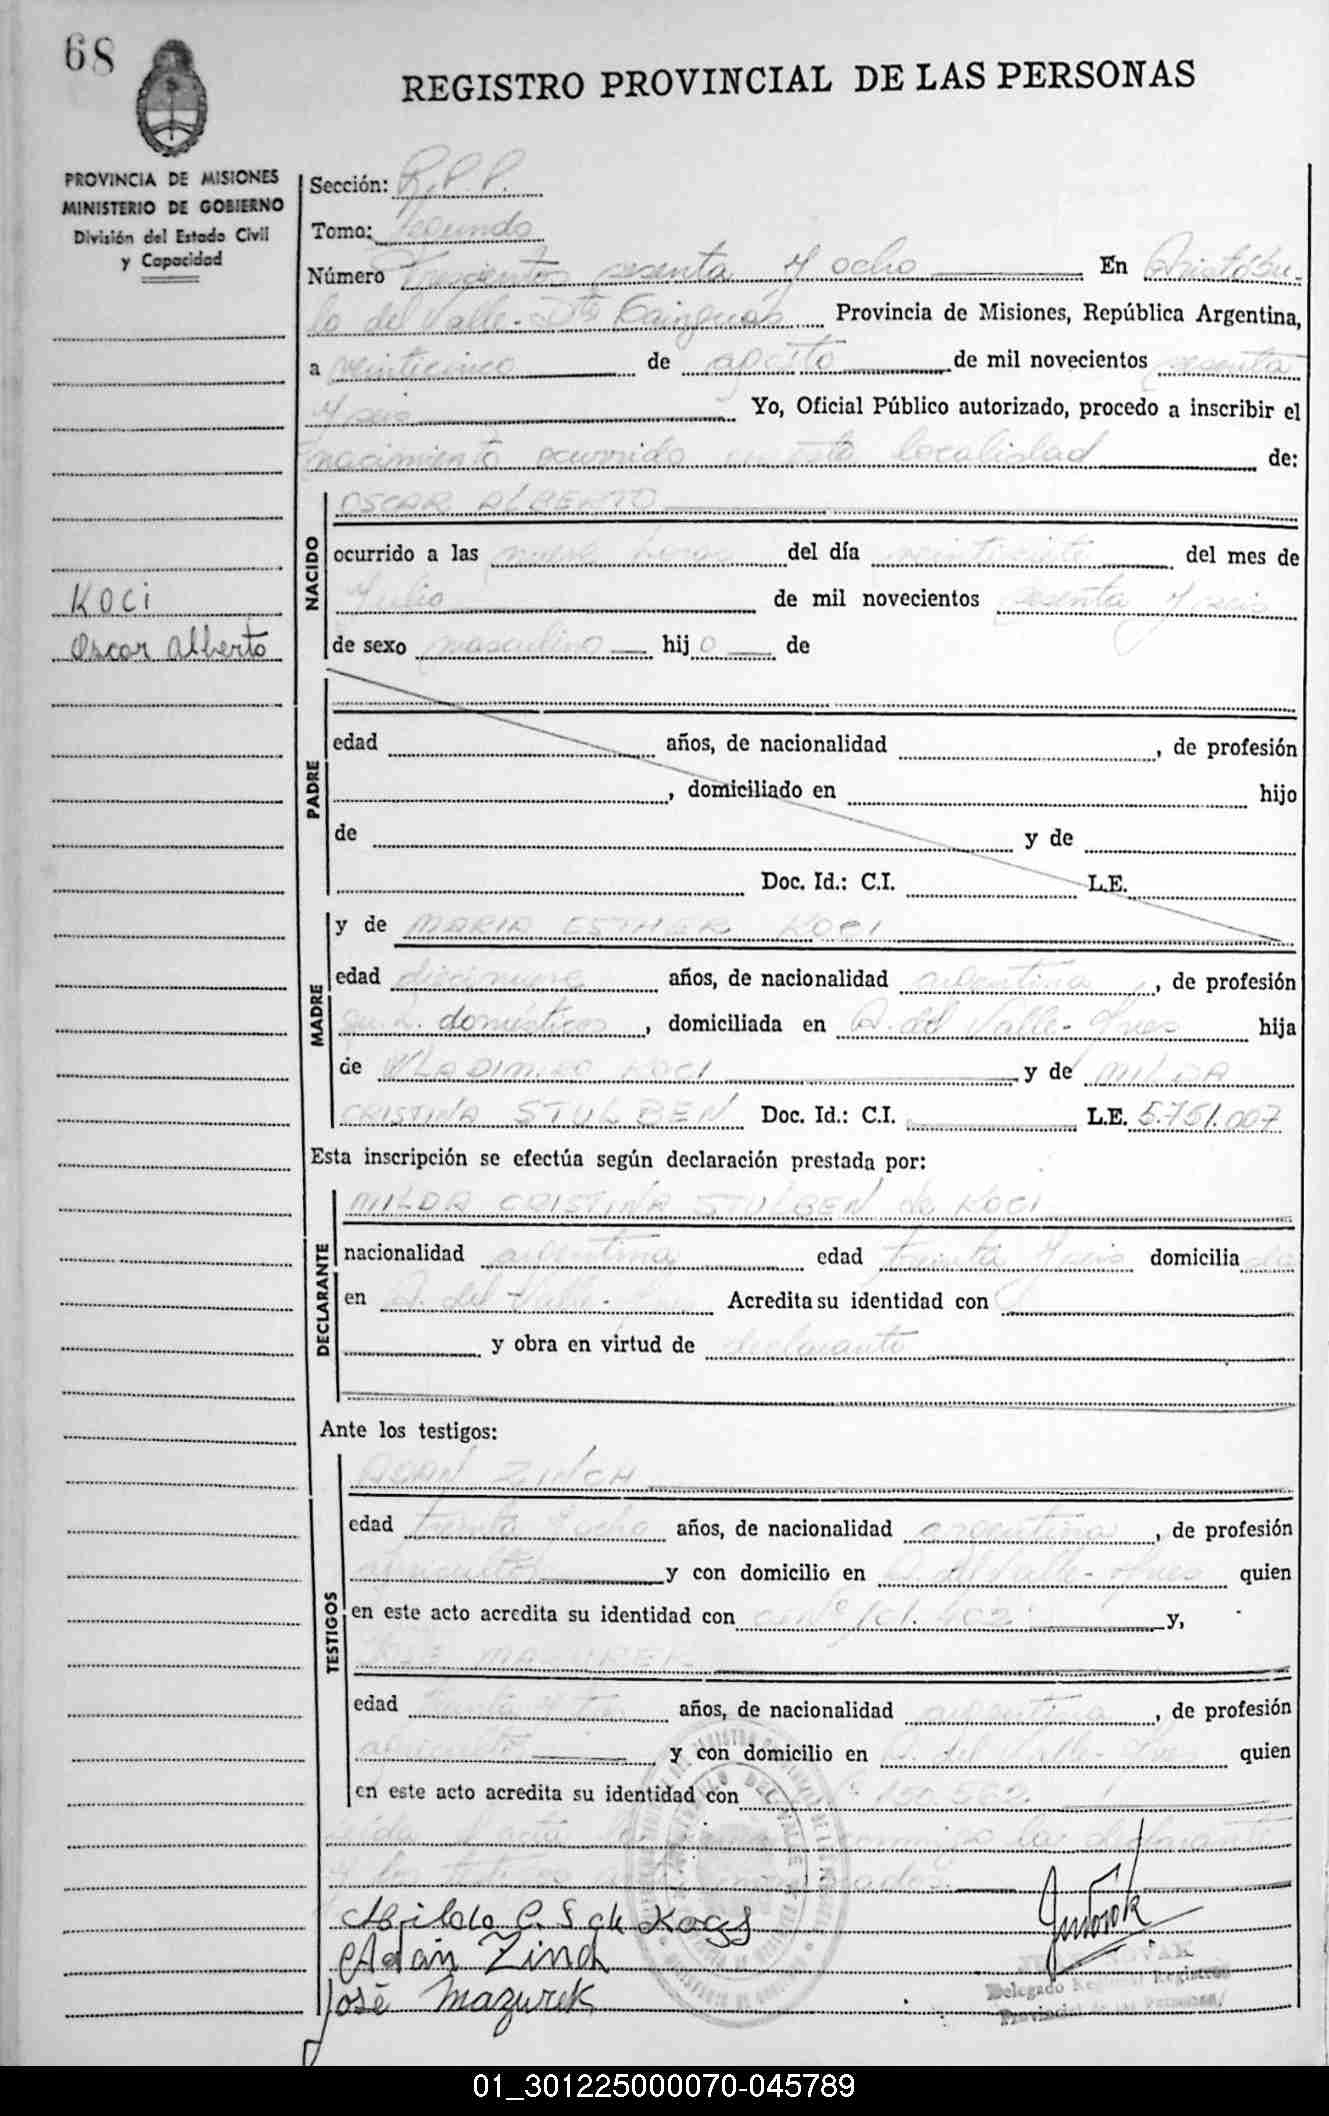 68
REGISTRO PROVINCIAL DE LAS PERSONAS
PROVINCIA DE MISIONES
MINISTERIO DE GOBIERNO
División del Estado Civil
y Capacidad
Sección: R.P.P.
Tomo: Segundo
Número Trescientos sesenta y ocho En Aristóbu-
lo del Valle - Dto Cainguás Provincia de Misiones, República Argentina,
a veinticinco de agosto de mil novecientos sesenta
y seis Yo, Oficial Público autorizado, procedo a inscribir el
nacimiento ocurrido en esta localidad de:
NACIDO
OSCAR ALBERTO
ocurrido a las nueve horas del día veintisiete del mes de
KOCI
Julio de mil novecientos sesenta y seis
Oscar Alberto
de sexo masculino hijo de
PADRE
edad años, de nacionalidad , de profesión
, domiciliado en hijo
de y de
Doc. Id.: C.I. L.E.
MADRE
y de MARIA ESTHER KOCI
edad diecinueve años, de nacionalidad argentina, de profesión
domésticos, domiciliada en A. del Valle - Mnes hija
de WLADIMIRO KOCI y de MILDA
CRISTINA STULBEN Doc. Id.: C.I. L.E. 5.751.007
Esta inscripción se efectúa según declaración prestada por:
DECLARANTE
MILDA CRISTINA STULBEN de KOCI
nacionalidad argentina edad treinta y seis domiciliada
en A. del Valle - Mnes Acredita su identidad con
y obra en virtud de declarante
Ante los testigos:
TESTIGOS
ADAN ZINCH
edad treinta y ocho años, de nacionalidad argentina, de profesión
agricultor y con domicilio en A. del Valle - Mnes quien
en este acto acredita su identidad con 101.402 y,
JOSE MAZUREK
edad treinta años, de nacionalidad argentina, de profesión
agricultor y con domicilio en A. del Valle - Mnes quien
en este acto acredita su identidad con 150.562
Leída el acta la firman conmigo la declarante
y los testigos
Milda C. S de Kocy
Adán Zinch
José Mazurek
Delegado Registro
Provincial de las Personas
01_301225000070-045789